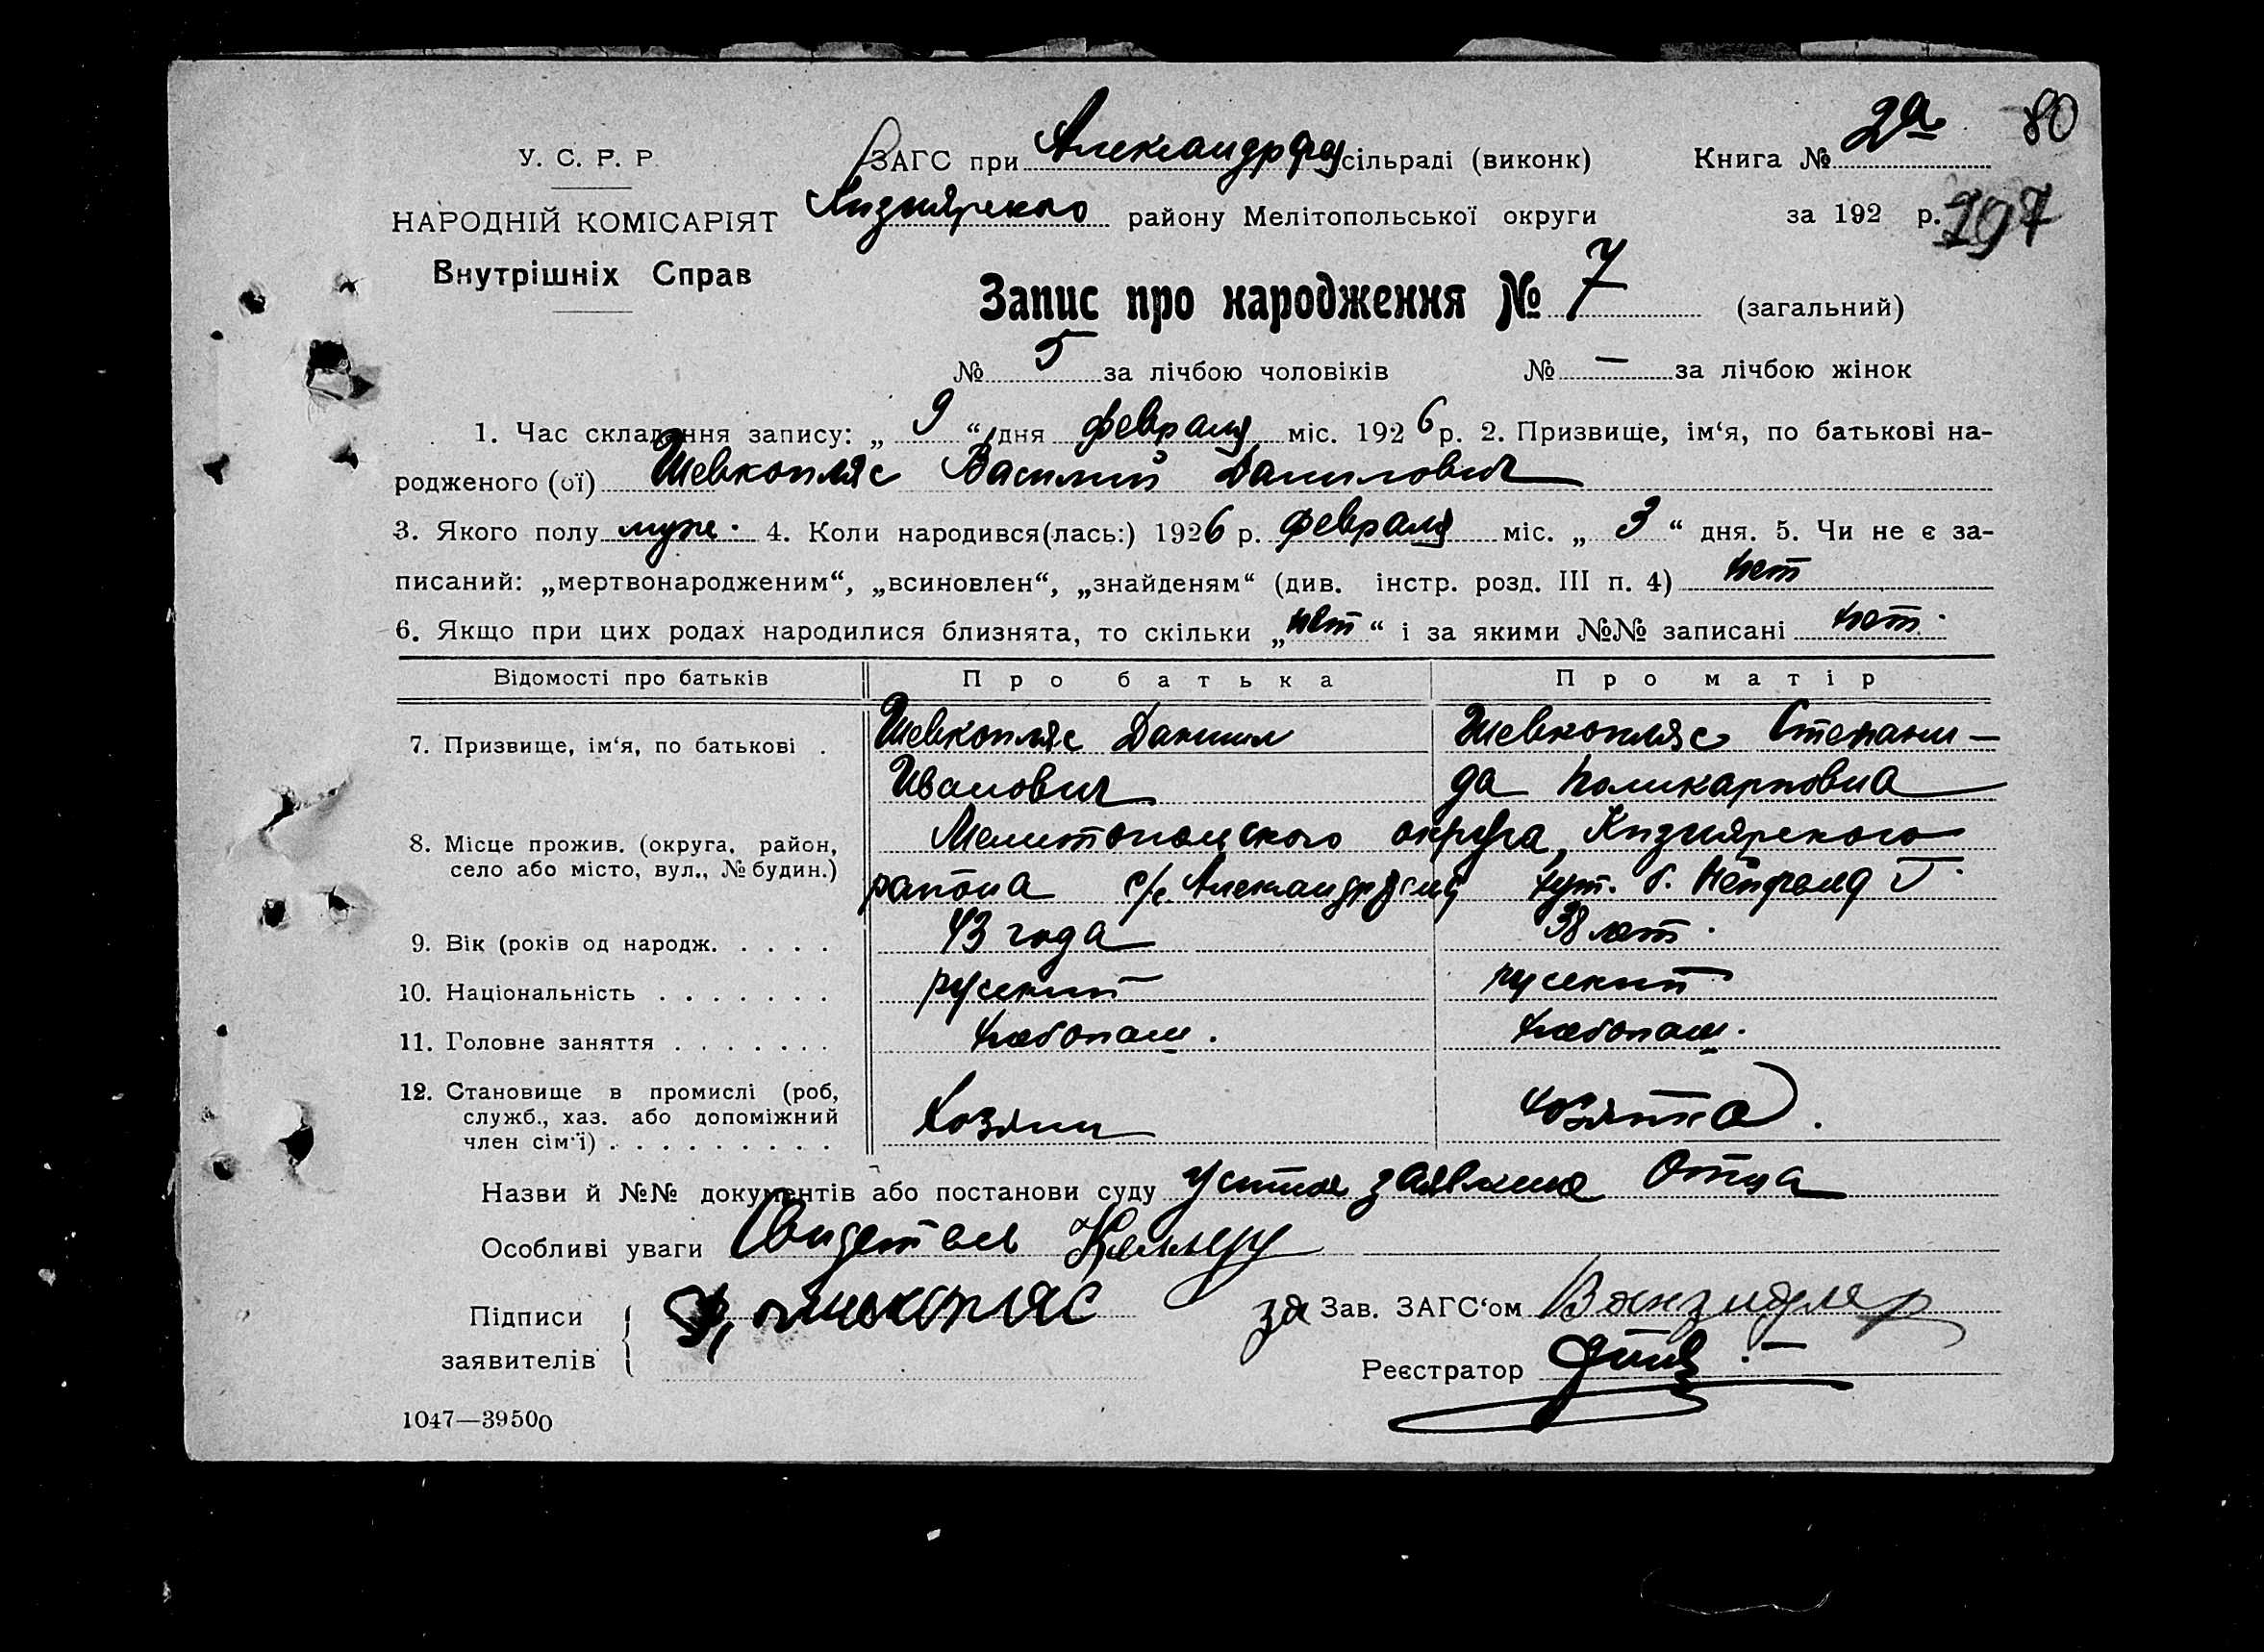 80
У. С. Р. Р. ЗАГС при Александрфел сільраді (виконк) Книга № 2а
НАРОДНІЙ КОМІСАРІЯТ Кизиярского району Мелітопольської округи за 192 р. 197
Внутрішніх Справ
Запис про народження № 7 (загальний)
№ 5 за лічбою чоловіків № — за лічбою жінок
1. Час складання запису: „ 9 “ дня февраля міс. 1926 р. 2. Призвище, ім‘я, по батькові на-
родженого (ої) Шевкопляс Василий Данилович
3. Якого полу муж. 4. Коли народився(лась:) 1926 р. февраля міс. „ 3 “ дня. 5. Чи не є за-
писаний: „мертвонародженим“, „всиновлен“, „знайденям“ (див. інстр. розд. III п. 4) нет
6. Якщо при цих родах народилися близнята, то скільки „нет“ і за якими №№ записані нет.
Відомості про батьків Про батька Про матір
7. Призвище, ім‘я, по батькові . Шевкопляс Даниил Шевкопляс Степани-
Иванович да Поликарповна
8. Місце прожив. (округа, район, Мелитопольского округа, Кизиярского
село або місто, вул., № будин.) района с/с хут. б.
9. Вік (років од народж. . . . . 43 года 38 лет.
10. Національність . . . . . . . русский русский
11. Головне заняття . . . . . . . хлебопаш. хлебопаш.
12. Становище в промислі (роб,
служб., хаз. або допоміжний Хозяин хозяйка.
член сім‘ї) . . . . . . . . .
Назви й №№ документів або постанови суду Устное заявление Отца
Особливі уваги Свидетель
Підписи Шевкопляс за Зав. ЗАГС‘ом
заявителів Реєстратор
1047—39500